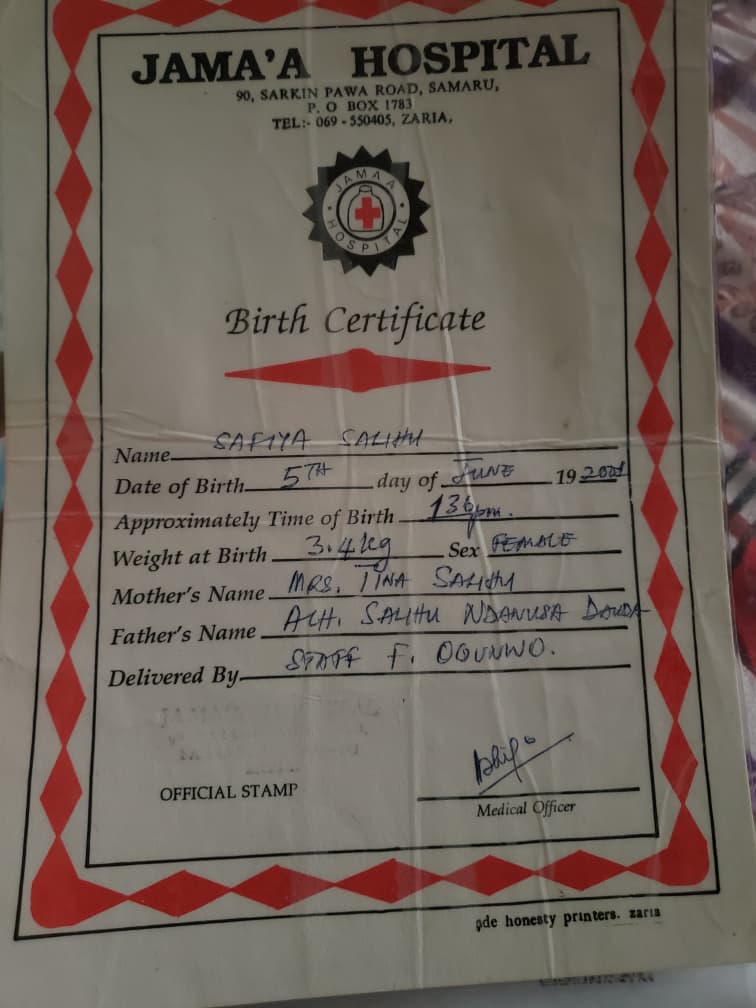 JAMA'A HOSPITAL
90, SARKIN PAWA ROAD, SAMARU,
P. O BOX 1783
TEL:- 069 - 550405, ZARIA.
JAMAA HOSPITAL
Birth Certificate
Name SAFIYA SALIHU
Date of Birth 5TH day of JUNE 19 2001
Approximately Time of Birth 136pm.
Weight at Birth 3.4kg Sex FEMALE
Mother's Name MRS. TINA SALIHU
Father's Name ALH. SALIHU NDANUSA DAUDA
Delivered By STAFF F. OGUNWO.
OFFICIAL STAMP
Medical Officer
gde honesty printers. zaria